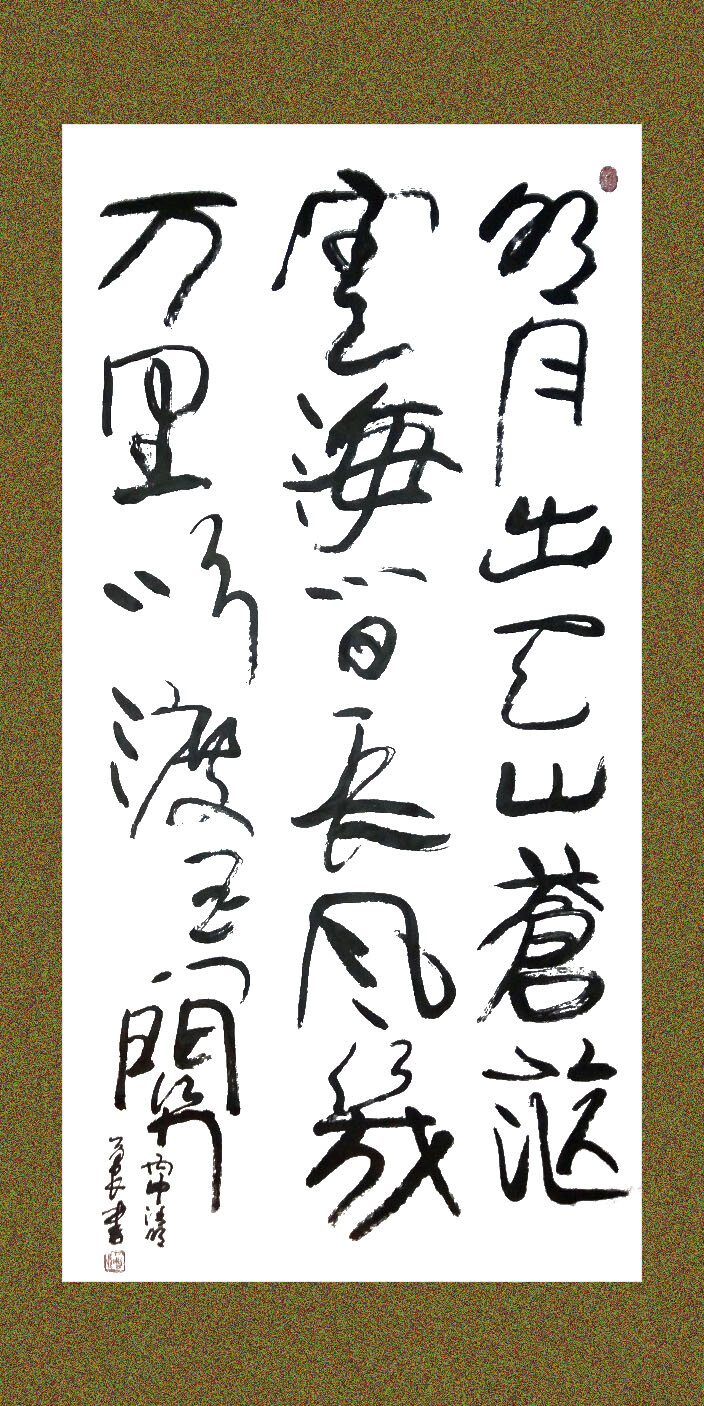 明月出天山蒼茫
雲海間長風幾
万里吹渡玉門關
丙申清明
書